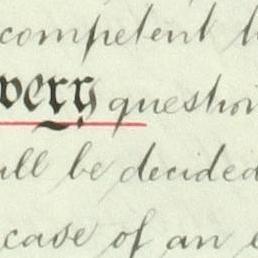 competent
very question
ll be decided
case of an